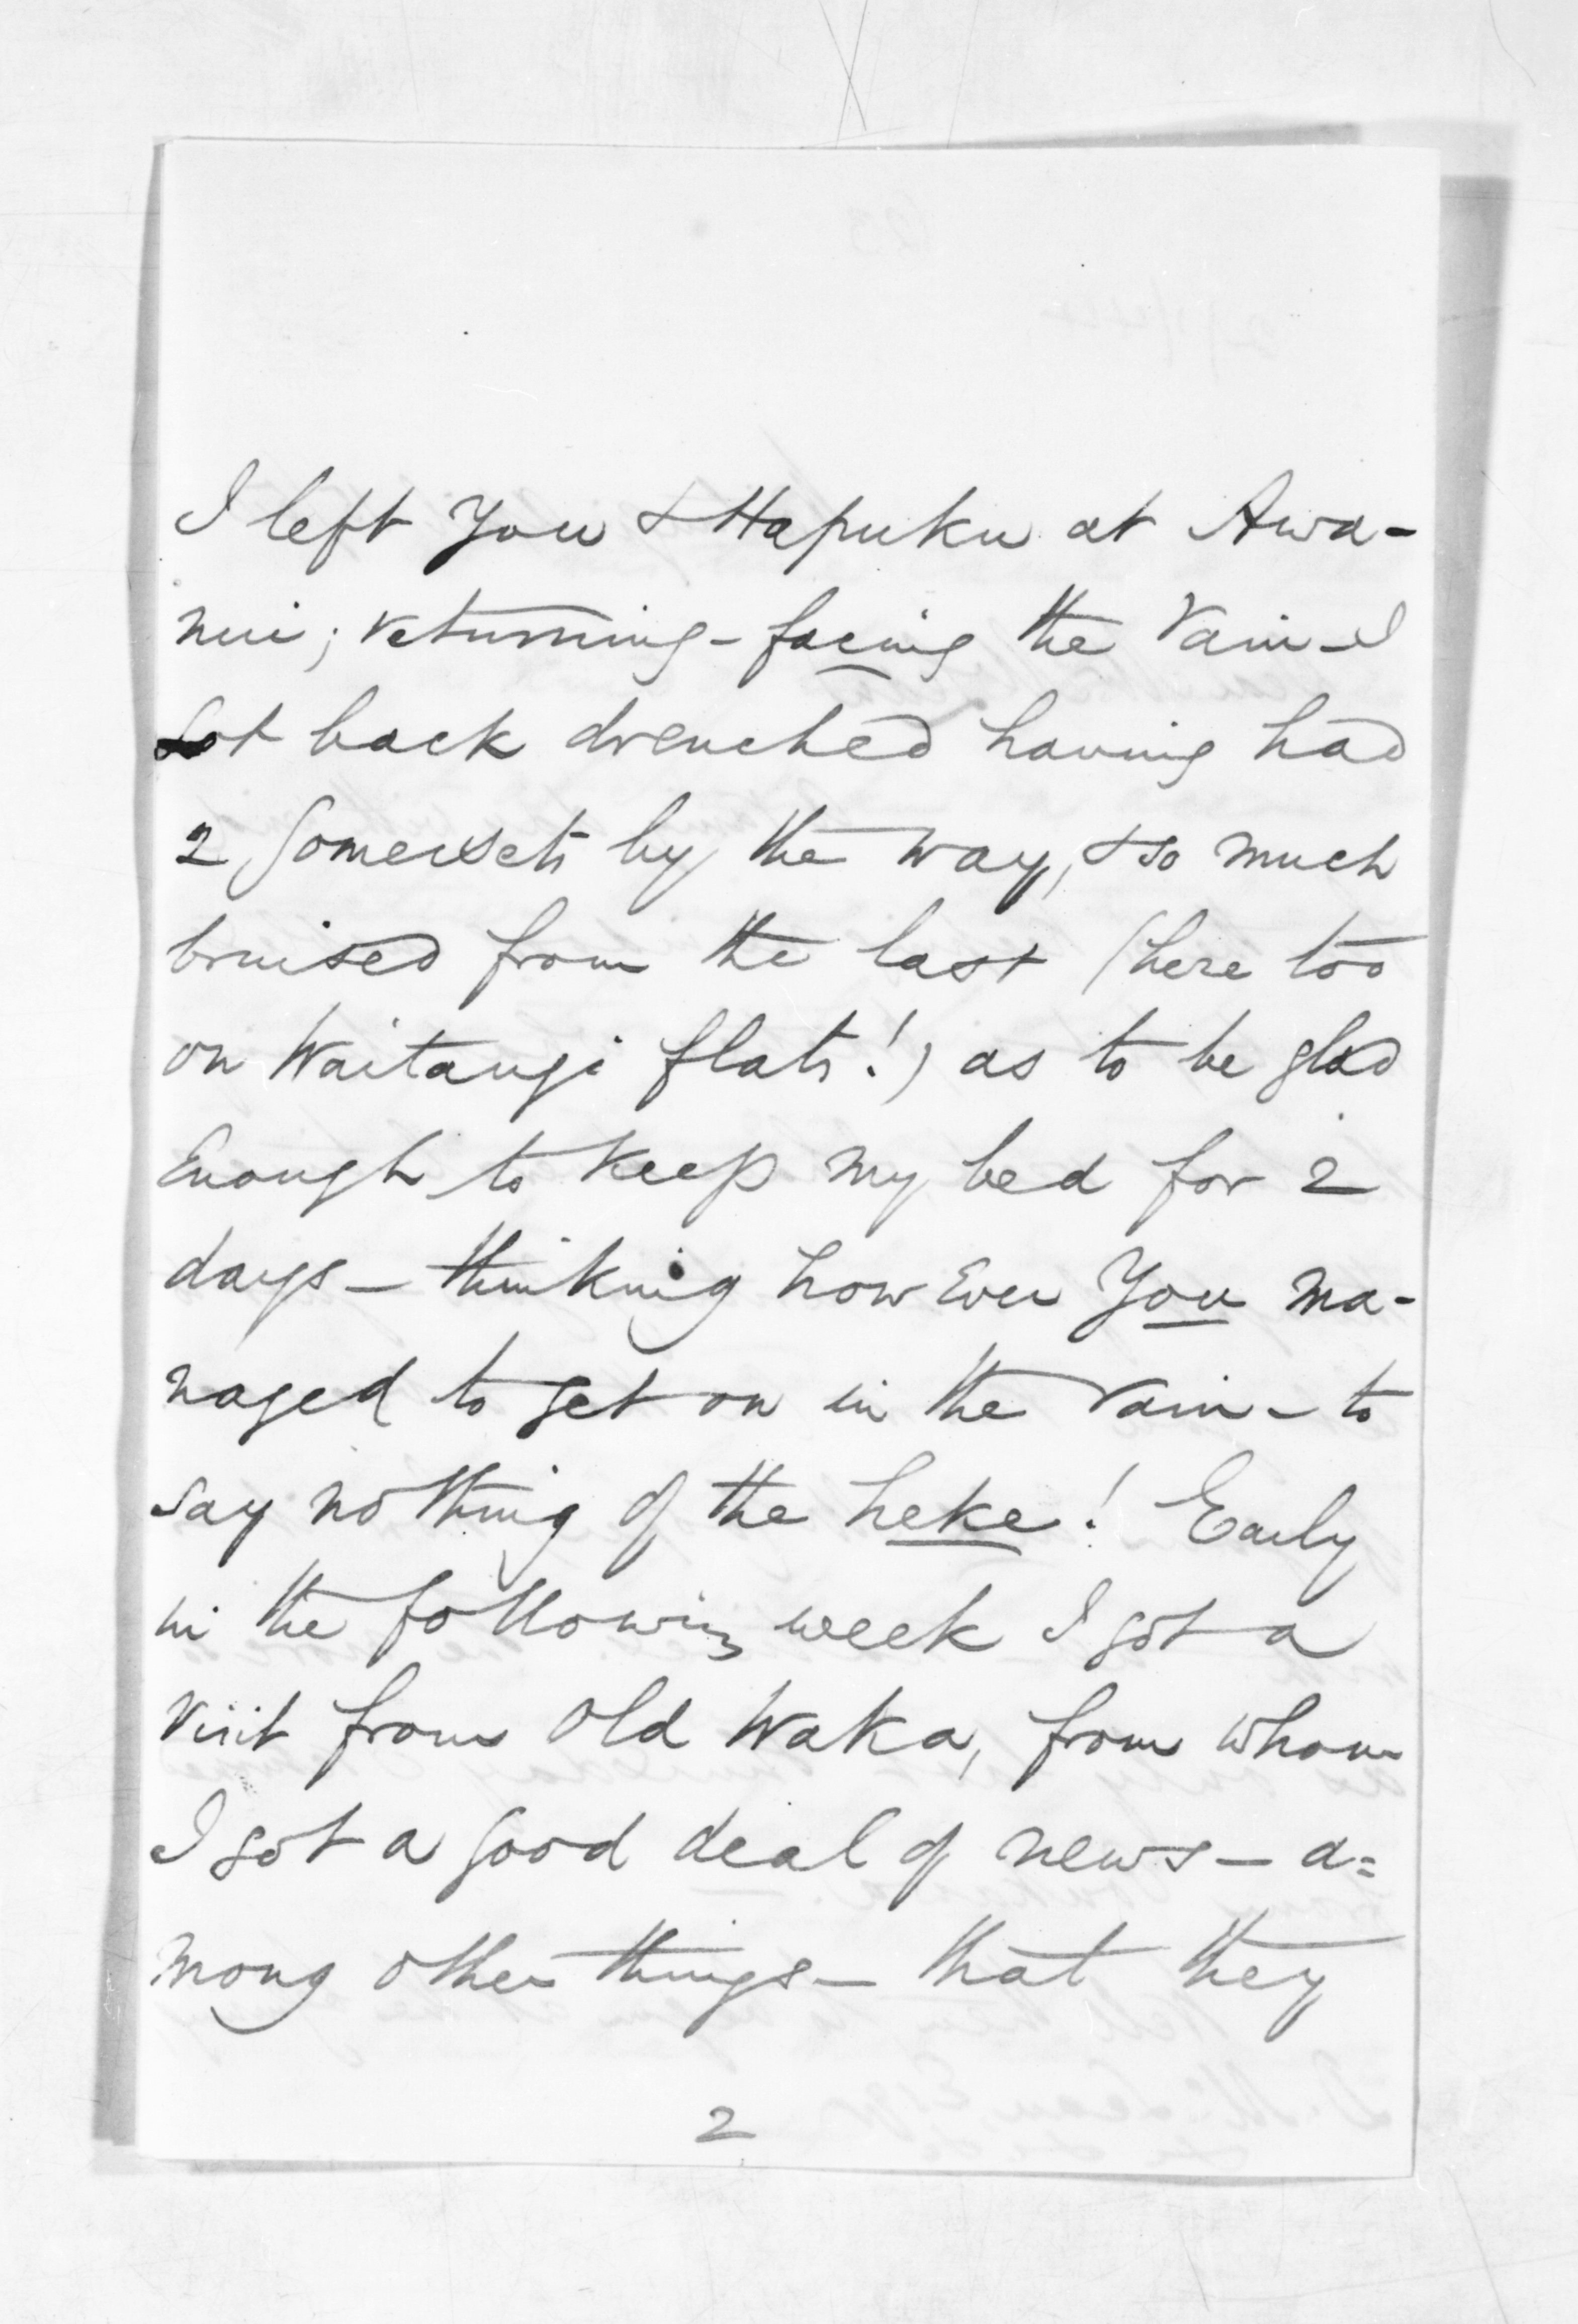 I left you & Hapuku at Awa-
nui; returning - facing the rain - I
got back drenched having had
2 Somersets by the way, & so much
bruised from the last (here too
on Waitangi flats!) as to be glad
Enough to keep my bed for 2
days - thinking how Ever you ma-
naged to get on in the rain - to
say nothing of the heke! Early
in the following week I got a
visit from Old Waka, from whom
I got a good deal of news - a=
mong other things - that they
2